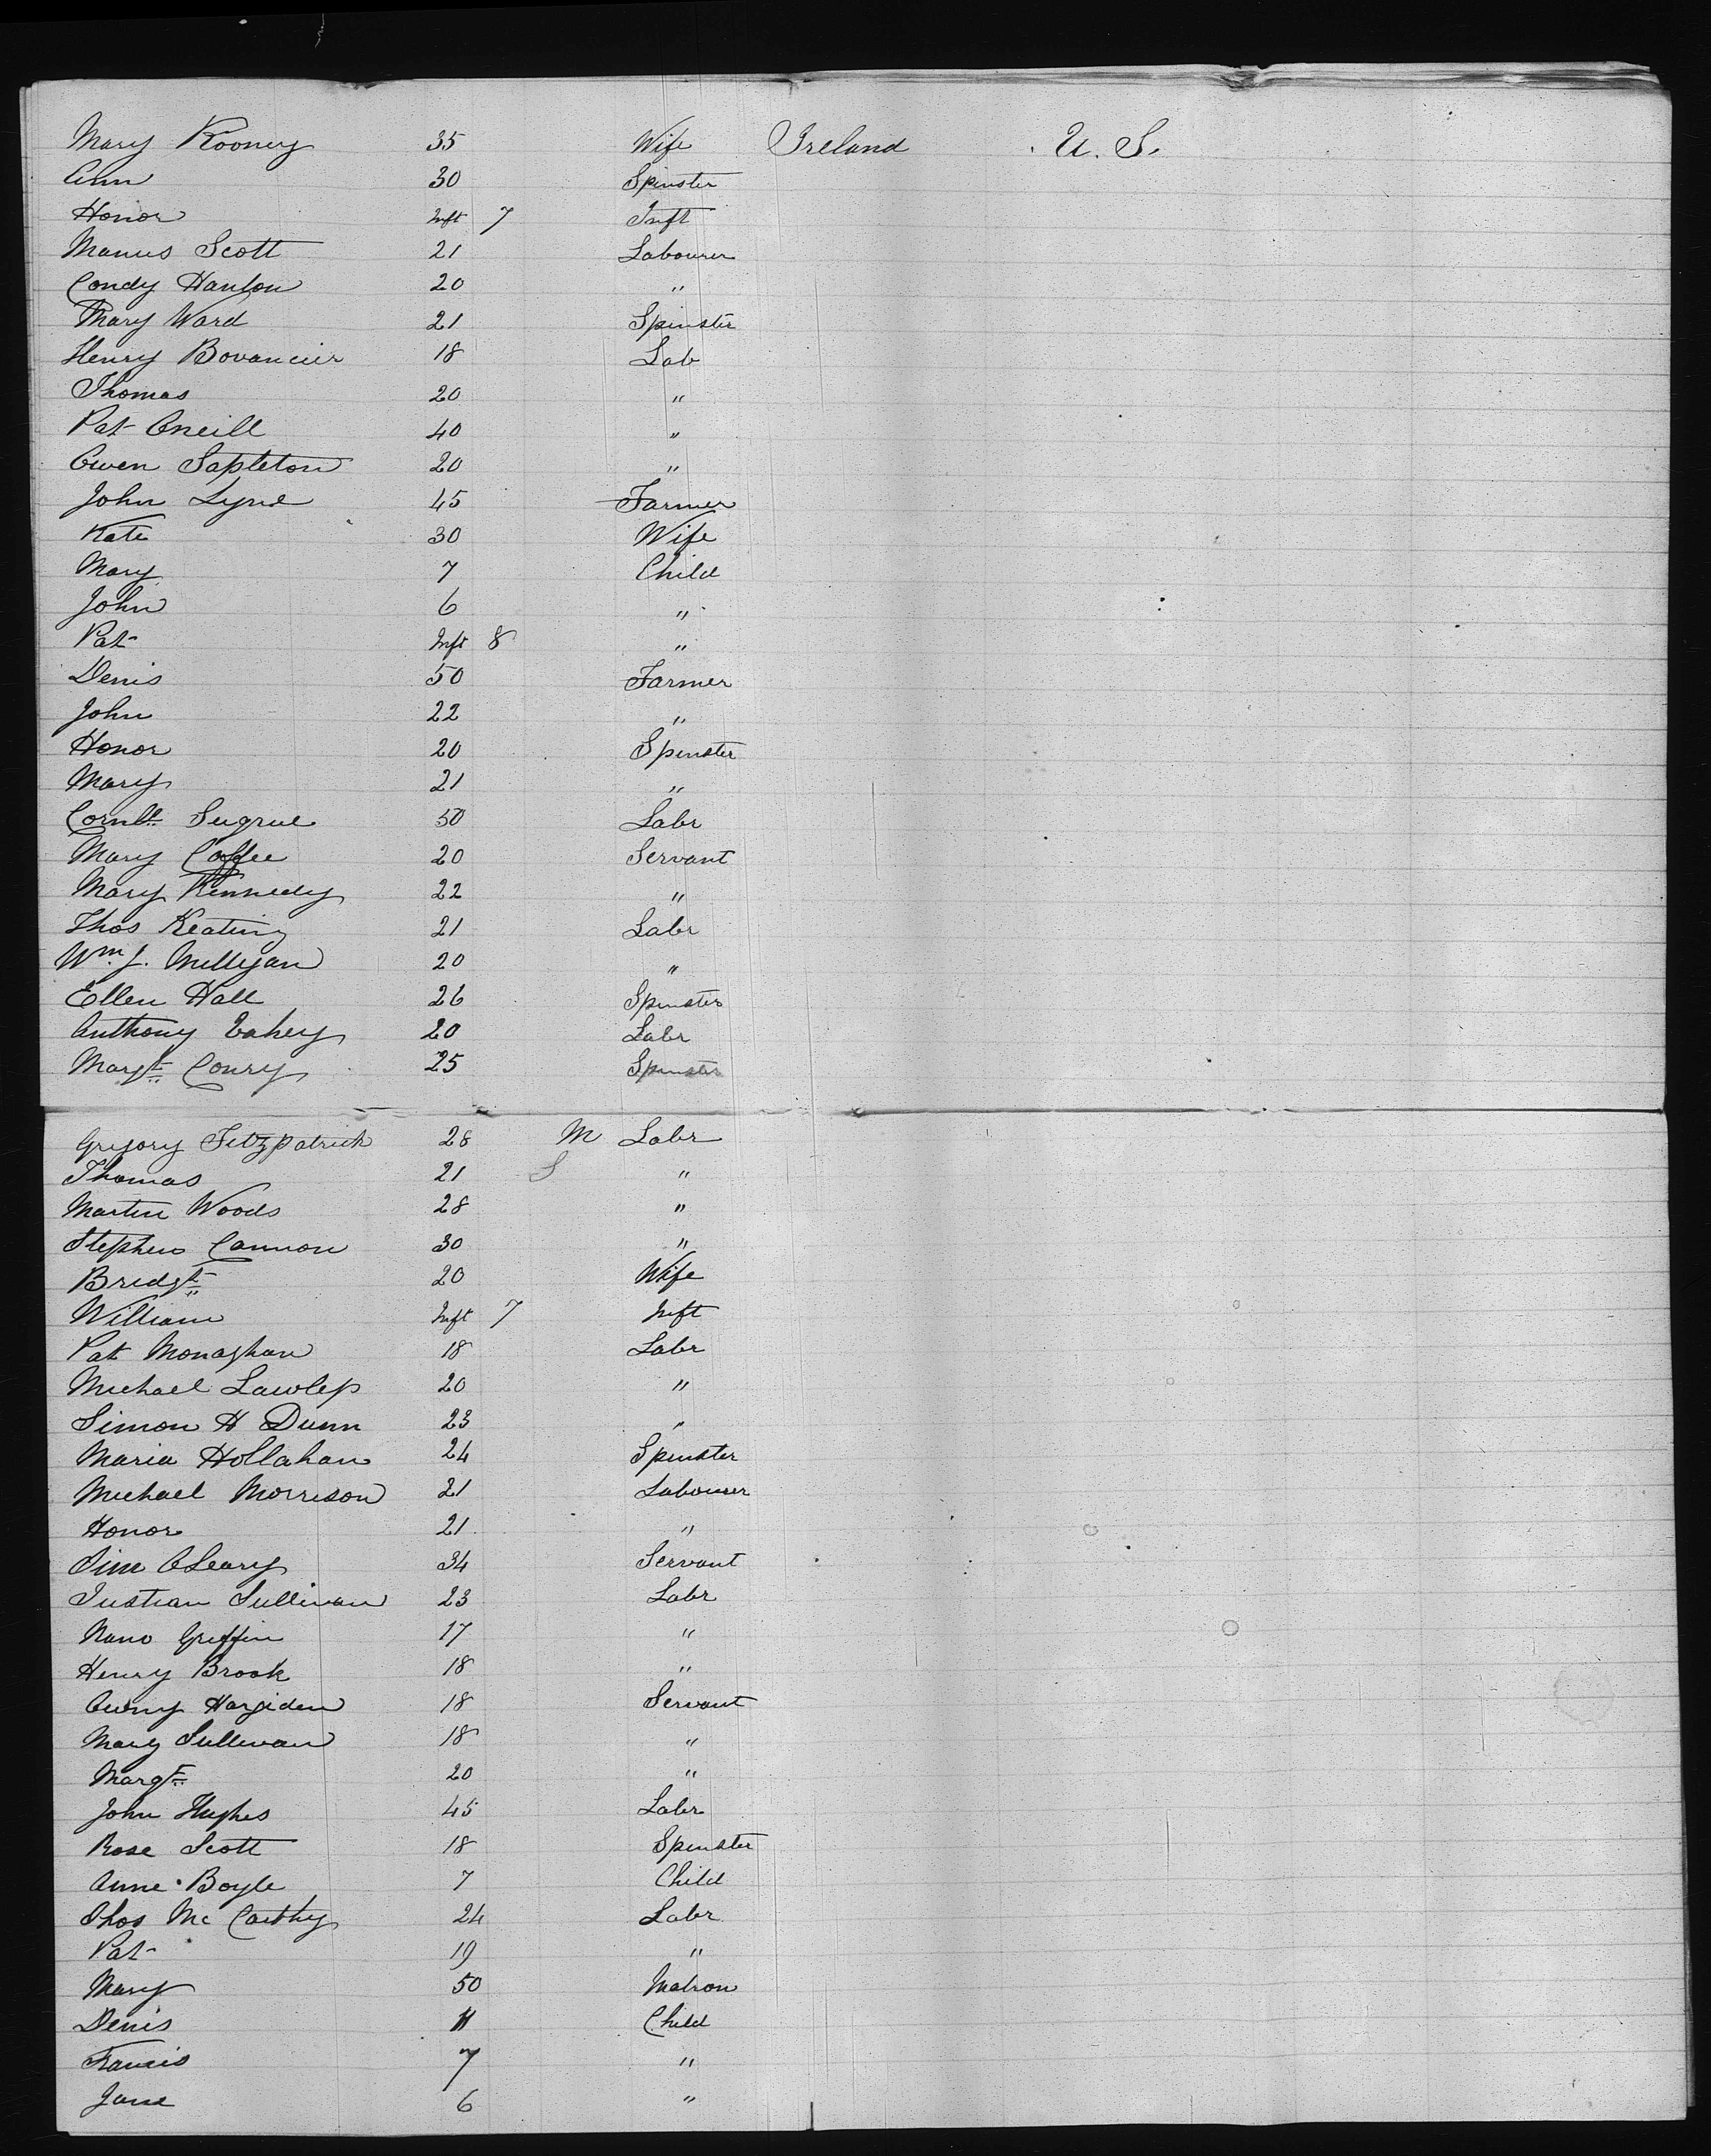 Mary Rooney 35 Wife Ireland U. S.
Ann 30 Spinster
Honor Inft 7 Inft
Manus Scott 21 Labourer
Condy Hanlon 20 "
Mary Ward 21 Spinster
Henry 18 Lab
Thomas 20 "
Pat Oneill 40 "
Owen Sapleton 20 "
John Lyne 45 Farmer
Kate 30 Wife
Mary 7 Child
John 6 "
Pat Inft 8 "
Denis 50 Farmer
John 22 "
Honor 20 Spinster
Mary 21 "
Cornls Sugrue 50 Labr
Mary Coffee 20 Servant
Mary Kennedy 22 "
Thos Keating 21 Labr
Wm. J. Milligan 20 "
Ellen Hall 26 Spinster
Anthony 20 Labr
Margt Conry 25 Spinster
Gregory Fitzpatrick 28 M Labr
Thomas 21 S "
Martin Woods 28 "
Stephen Cannon 30 "
Bridgt 20 Wife
William Inft 7 Inft
Pat Monaghan 18 Labr
Michael 20 "
Simon H Dunn 23 "
Maria Hollahan 24 Spinster
Michael Morrison 21 Labourer
Honor 21 "
Jim OLeary 34 Servant
Sullivan 23 Labr
Nano Griffin 17 "
Henry Brook 18 "
Hargiden 18 Servant
Mary Sullivan 18 "
Margt 20 "
John Hughes 45 Labr
Rose Scott 18 Spinster
Anne Boyle 7 Child
Thos Mc Carthy 24 Labr
Pat 19 "
Mary 50 Matron
Denis 11 Child
Francis 7 "
Jane 6 "